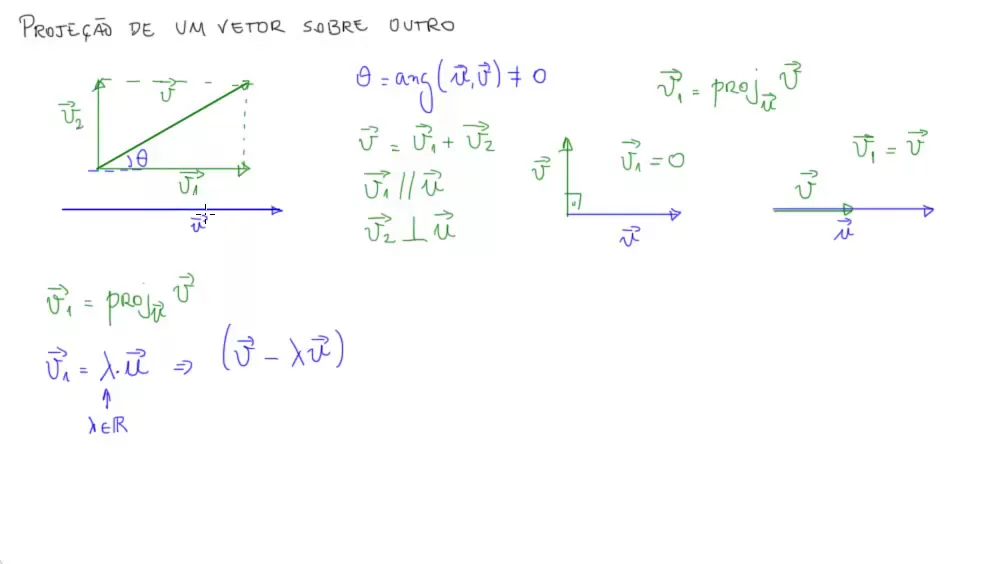 PROJEÇÃO DE UM VETOR SOBRE OUTRO
v⃗
v⃗₂
θ
v⃗₁
u⃗
θ = ang(u⃗,v⃗) ≠ 0
v⃗ = v⃗₁ + v⃗₂
v⃗₁ // u⃗
v⃗₂ ⊥ u⃗
v⃗₁ = proj_u⃗ v⃗
v⃗
v⃗₁ = 0
u⃗
v⃗₁ = v⃗
v⃗
u⃗
v⃗₁ = proj_u⃗ v⃗
v⃗₁ = λ.u⃗ ⇒ (v⃗ - λu⃗)
↑
λ∈ℝ